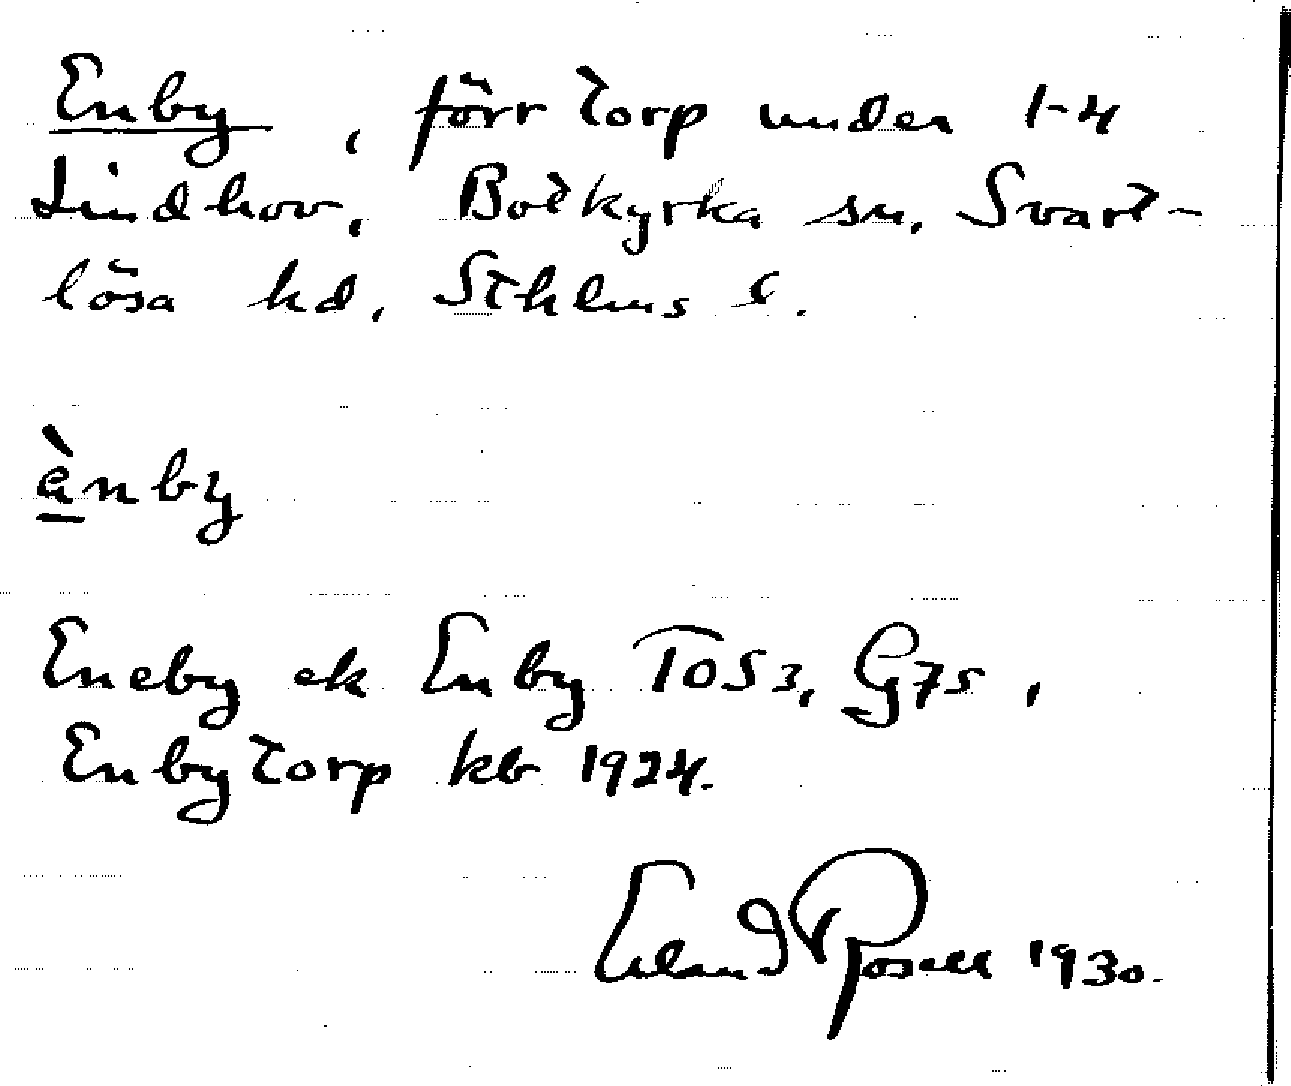 Enby, förr torp under 1-4
Lindhov, Botkyrka sn, Svart-
lösa hd, Sthlms l.
ènby
Eneby ek Enby TOS3, G75,
Enbytorp kb 1924.
Erland Rosell 1930.